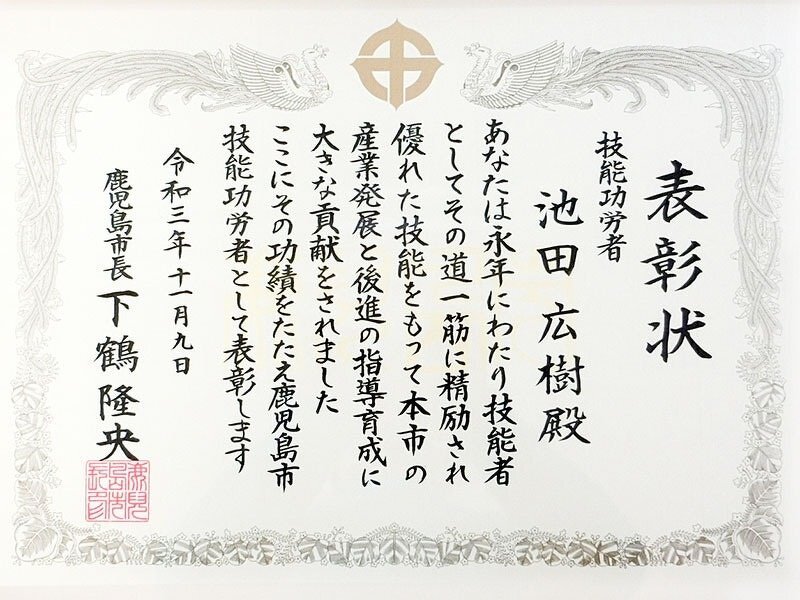 表彰状
技能功労者
池田広樹殿
あなたは永年にわたり技能者
としてその道一筋に精励され
優れた技能をもって本市の
産業発展と後進の指導育成に
大きな貢献をされました
ここにその功績をたたえ鹿児島市
技能功労者として表彰します
令和三年十一月九日
鹿児島市長 下鶴隆央